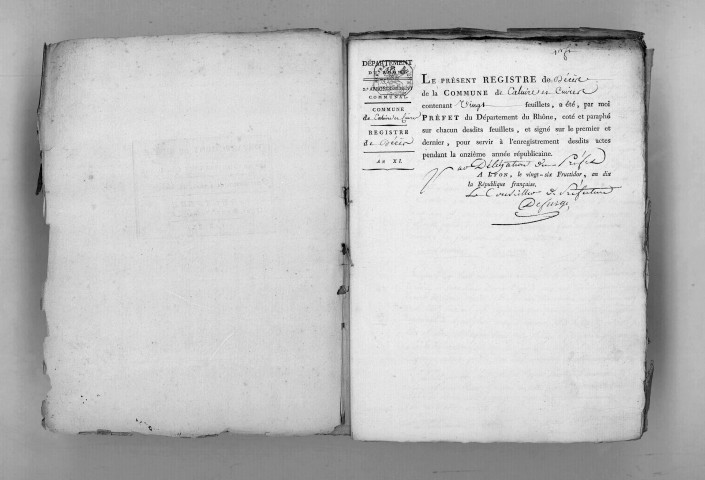 DÉPARTEMENT
DU RHONE.
II.e ARRONDISSEMENT
COMMUNAL.
COMMUNE
de Caluire et Cuire
REGISTRE
de Décès
AN XI.
1er ft
LE PRÉSENT REGISTRE de Décès
de la COMMUNE de Caluire et Cuire
contenant Vingt feuillets, a été, par moi
PRÉFET du Département du Rhône, coté et paraphé
sur chacun desdits feuillets, et signé sur le premier et
dernier, pour servir à l'enregistrement desdits actes
pendant la onzième année républicaine.
par Délégation du Préfet
A LYON, le vingt-six Fructidor, an dix
la République française,
Le Conseiller de Préfecture